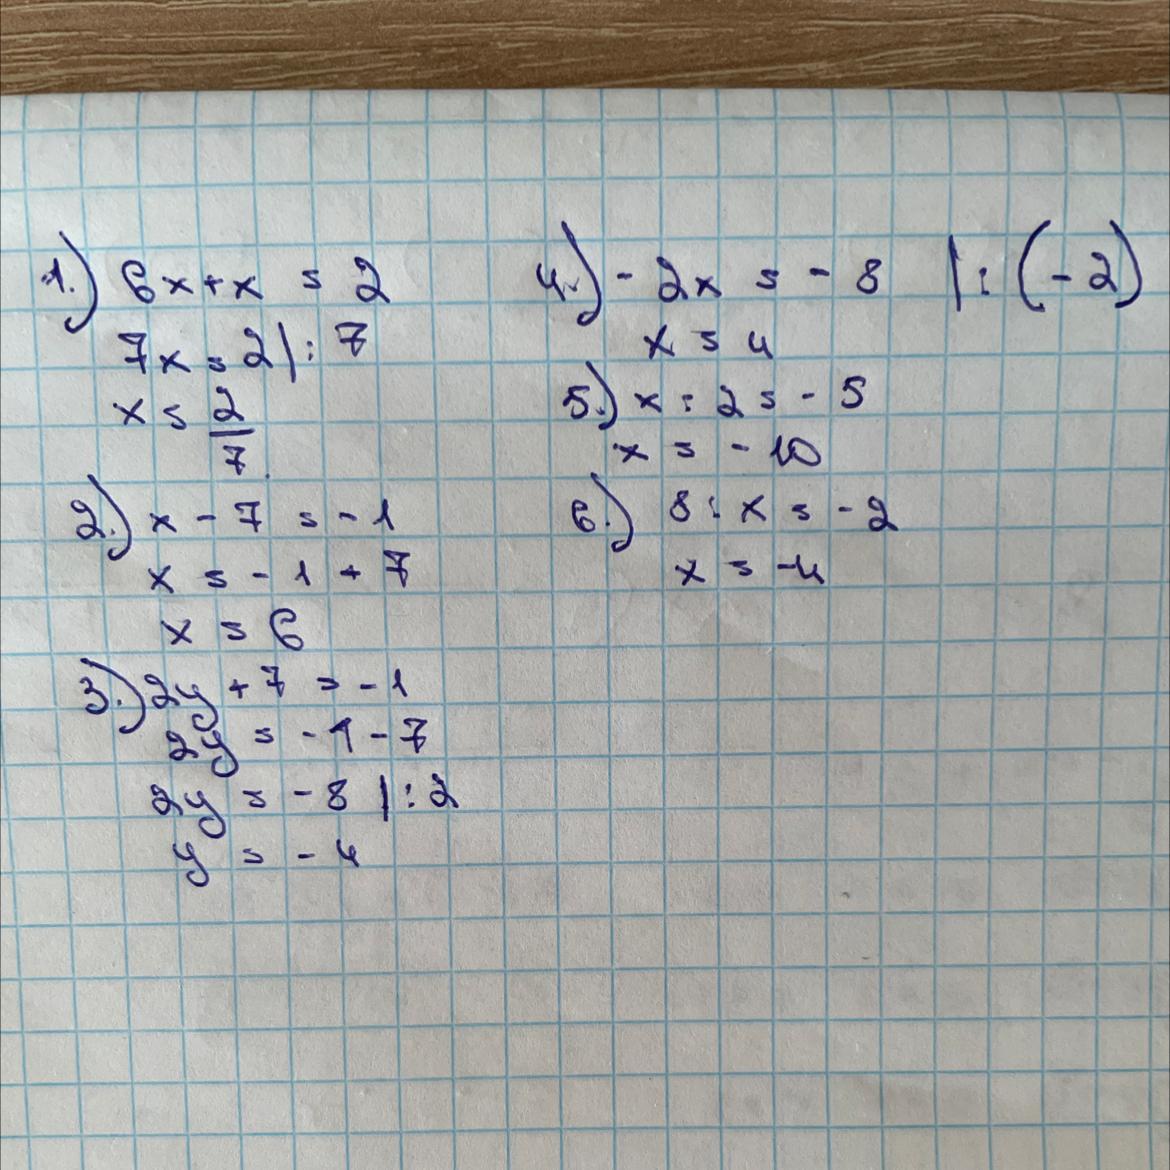 1.) 6x+x = 2
7x = 2 | : 7
x = 2/7
2.) x - 7 = -1
x = -1 + 7
x = 6
3.) 2y + 7 = -1
2y = -1 - 7
2y = -8 | : 2
y = -4
4.) -2x = -8 | : (-2)
x = 4
5.) x : 2 = -5
x = -10
6.) 8 : x = -2
x = -4